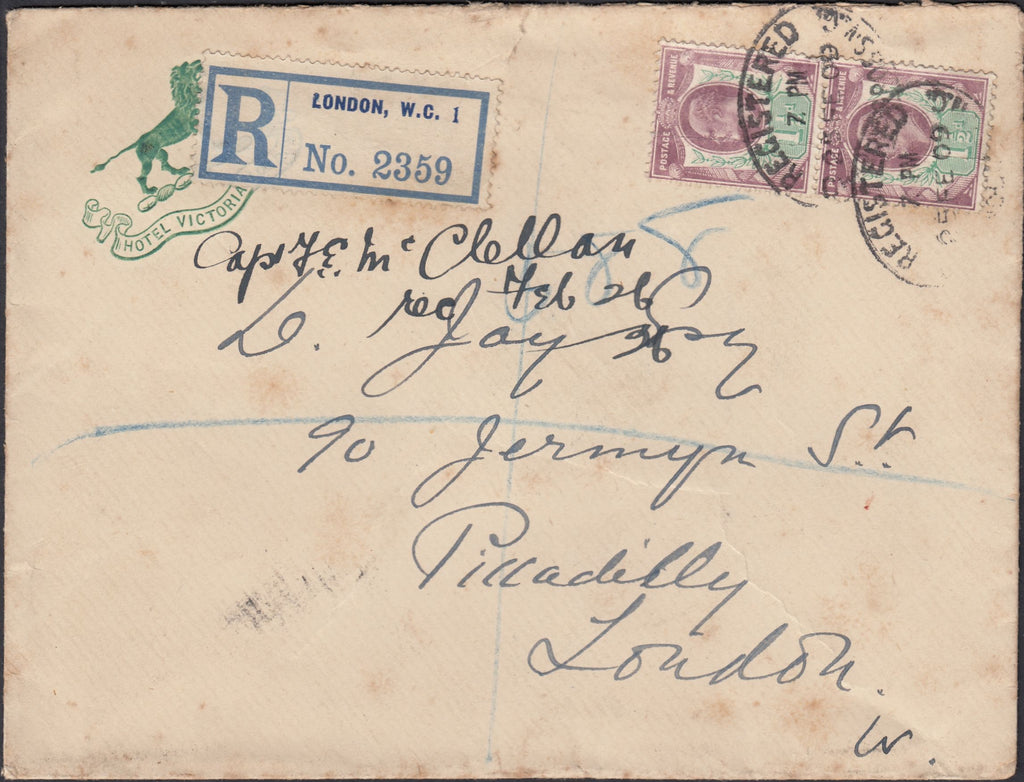 R
LONDON, W.C. 1
No. 2359
HOTEL VICTORIA
POSTAGE & REVENUE
1½d
POSTAGE & REVENUE
1½d
REGISTERED
7 PM
FE 09
REGISTERED
7 PM
FE 09
Capt F.E. McClellan
rec Feb 26
D. Jay
90 Jermyn St.
Piccadilly
London.
W.